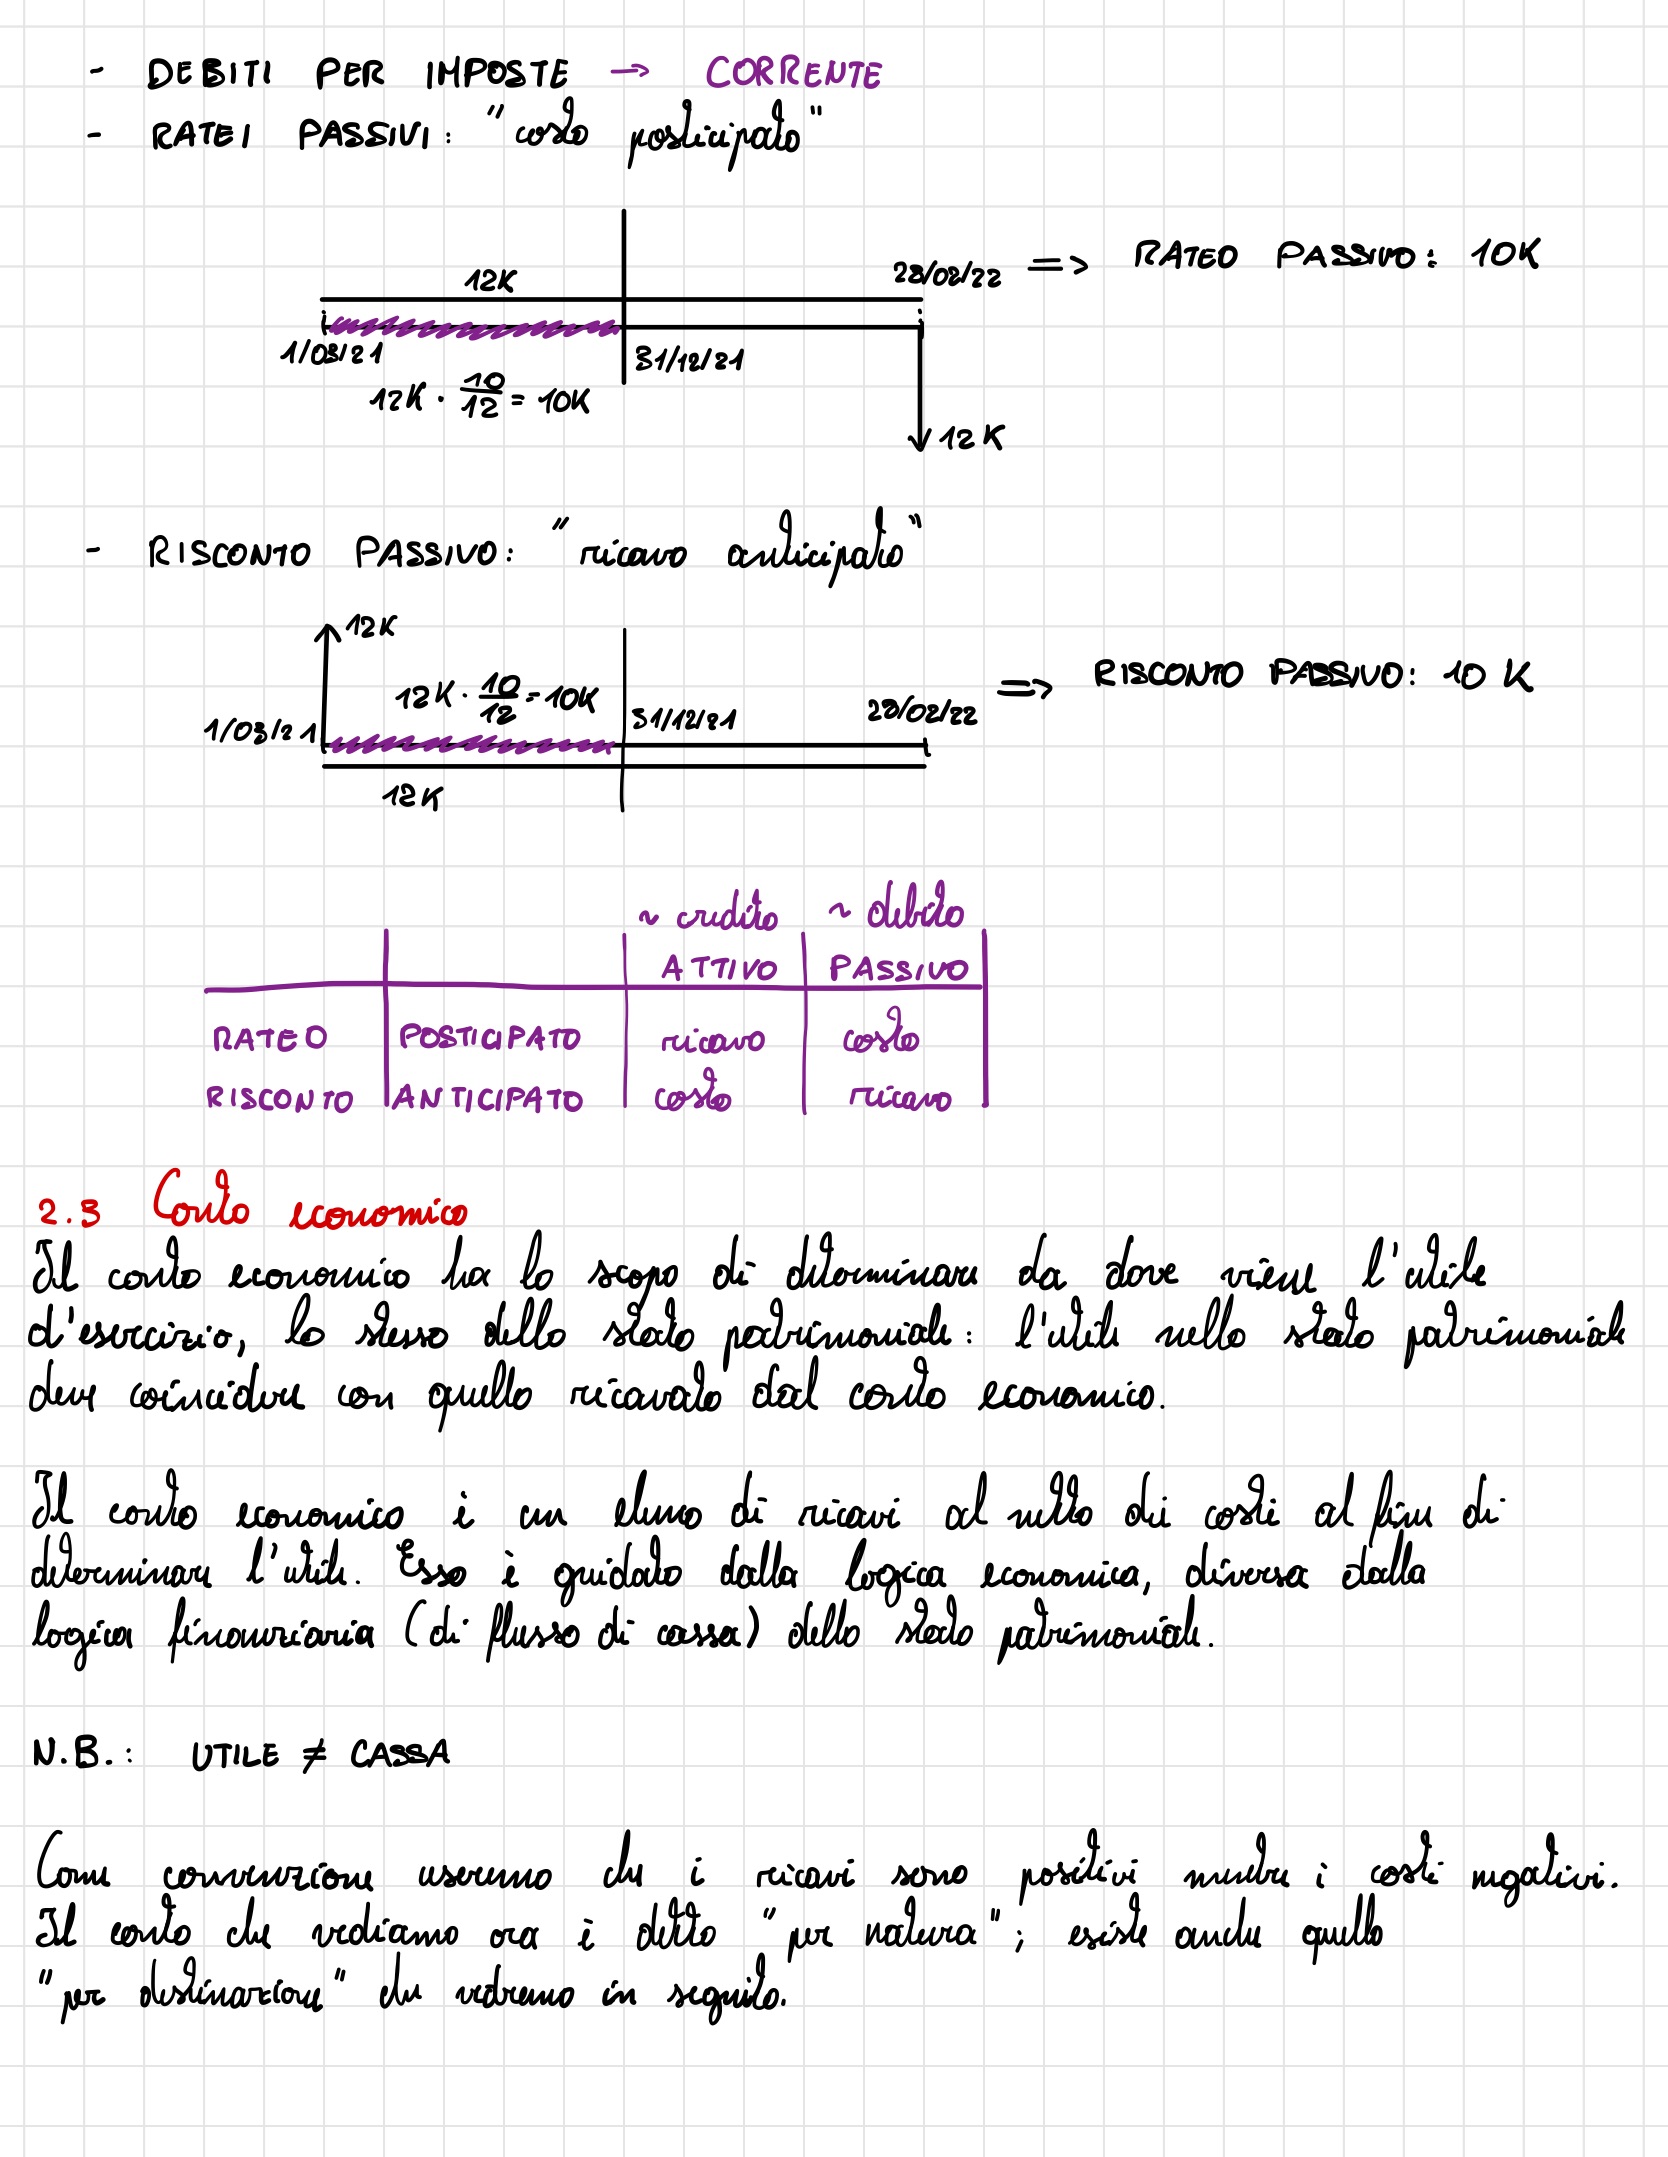 - DEBITI PER IMPOSTE → CORRENTE
- RATEI PASSIVI: "costo posticipato"
12K
28/02/22 => RATEO PASSIVO: 10K
1/03/21
31/12/21
12K · 10/12 = 10K
12K
- RISCONTO PASSIVO: "ricavo anticipato"
12K
12K · 10/12 = 10K
1/03/21
31/12/21
28/02/22
=> RISCONTO PASSIVO: 10 K
12K
~ credito ~ debito
ATTIVO PASSIVO
RATEO POSTICIPATO ricavo costo
RISCONTO ANTICIPATO costo ricavo
2.3 Conto economico
Il conto economico ha lo scopo di determinare da dove viene l'utile
d'esercizio, lo stesso dello stato patrimoniale: l'utile nello stato patrimoniale
deve coincidere con quello ricavato dal conto economico.
Il conto economico è un elenco di ricavi al netto dei costi al fine di
determinare l'utile. Esso è guidato dalla logica economica, diversa dalla
logica finanziaria (di flusso di cassa) dello stato patrimoniale.
N.B.: UTILE ≠ CASSA
Come convenzione useremo che i ricavi sono positivi mentre i costi negativi.
Il conto che vediamo ora è detto "per natura"; esiste anche quello
"per destinazione" che vedremo in seguito.